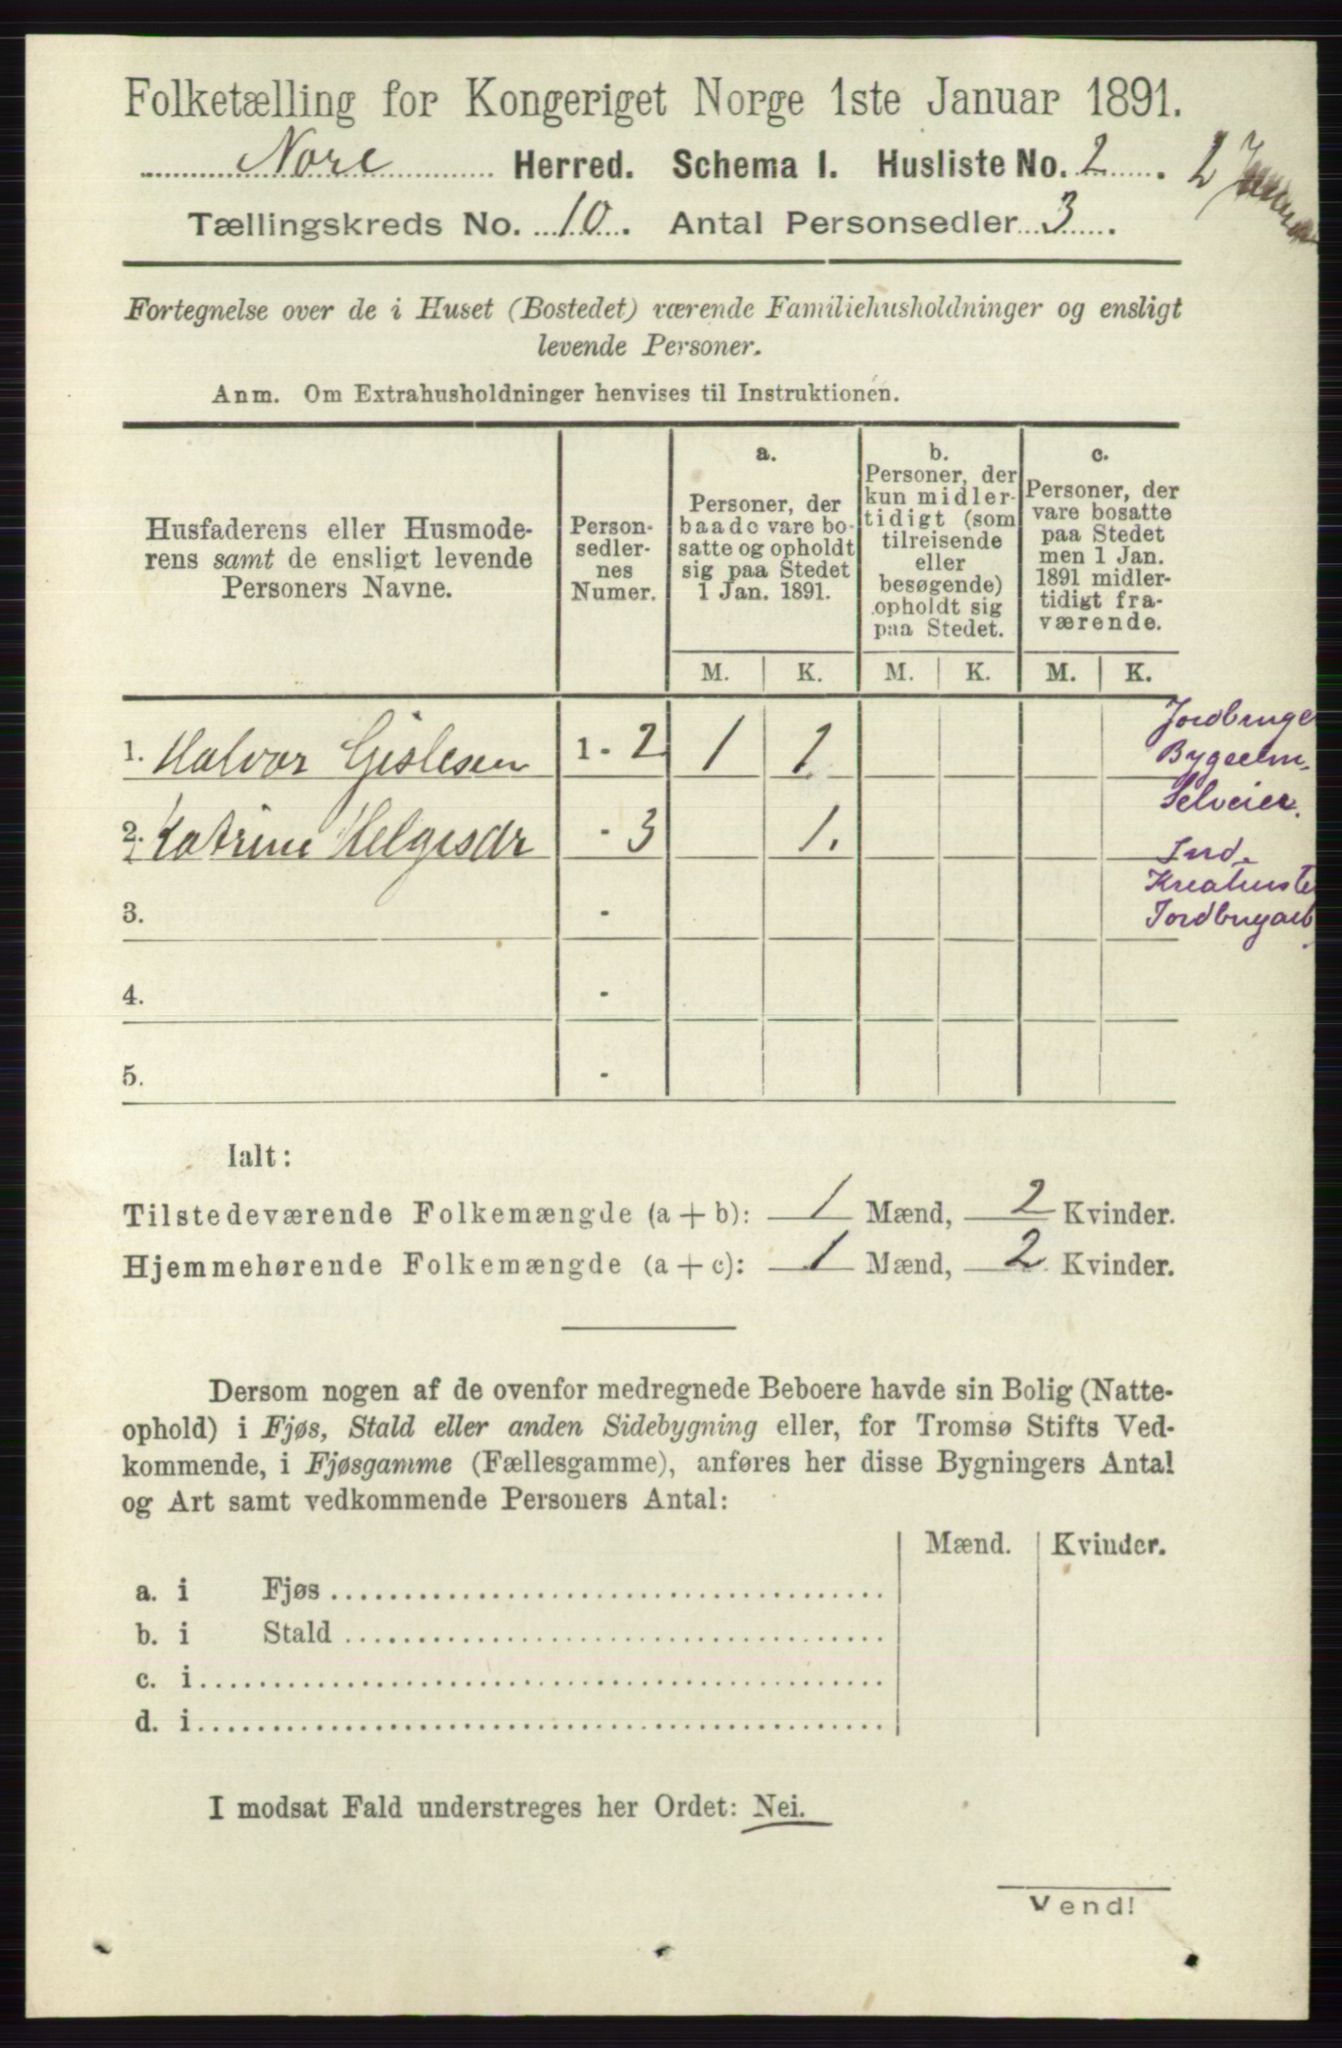 Folketælling for Kongeriget Norge 1ste Januar 1891.
Nore Herred. Schema I. Husliste No. 2.
2
Tællingskreds No. 10. Antal Personsedler 3.
Fortegnelse over de i Huset (Bostedet) værende Familiehusholdninger og ensligt
levende Personer.
Anm. Om Extrahusholdninger henvises til Instruktionen.
Husfaderens eller Husmode-
rens samt de ensligt levende
Personers Navne.
Person-
sedler-
nes
Numer.
a.
Personer, der
baade vare bo-
satte og opholdt
sig paa Stedet
1 Jan. 1891.
b.
Personer, der
kun midler-
tidigt (som
tilreisende
eller
besøgende)
opholdt sig
paa Stedet.
c.
Personer, der
vare bosatte
paa Stedet
men 1 Jan.
1891 midler-
tidigt fra-
værende.
M. K. M. K. M. K.
1. Halvor Gislesen 1 - 2 1 1
Jordbruge
Selveier.
2. Katrine Helgesdr - 3 1.
Ind.
3. -
4. -
5. -
Ialt:
Tilstedeværende Folkemængde (a + b): 1 Mænd, 2 Kvinder.
Hjemmehørende Folkemængde (a + c): 1 Mænd, 2 Kvinder.
Dersom nogen af de ovenfor medregnede Beboere havde sin Bolig (Natte-
ophold) i Fjøs, Stald eller anden Sidebygning eller, for Tromsø Stifts Ved-
kommende, i Fjøsgamme (Fællesgamme), anføres her disse Bygningers Antal
og Art samt vedkommende Personers Antal:
Mænd. Kvinder.
a. i Fjøs
b. i Stald
c. i
d. i
I modsat Fald understreges her Ordet: Nei.
Vend!